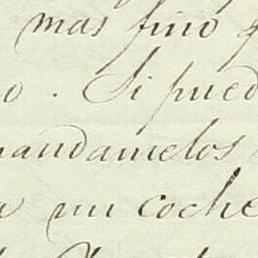 mas fino
o. Si pued
mandamelos
un coche